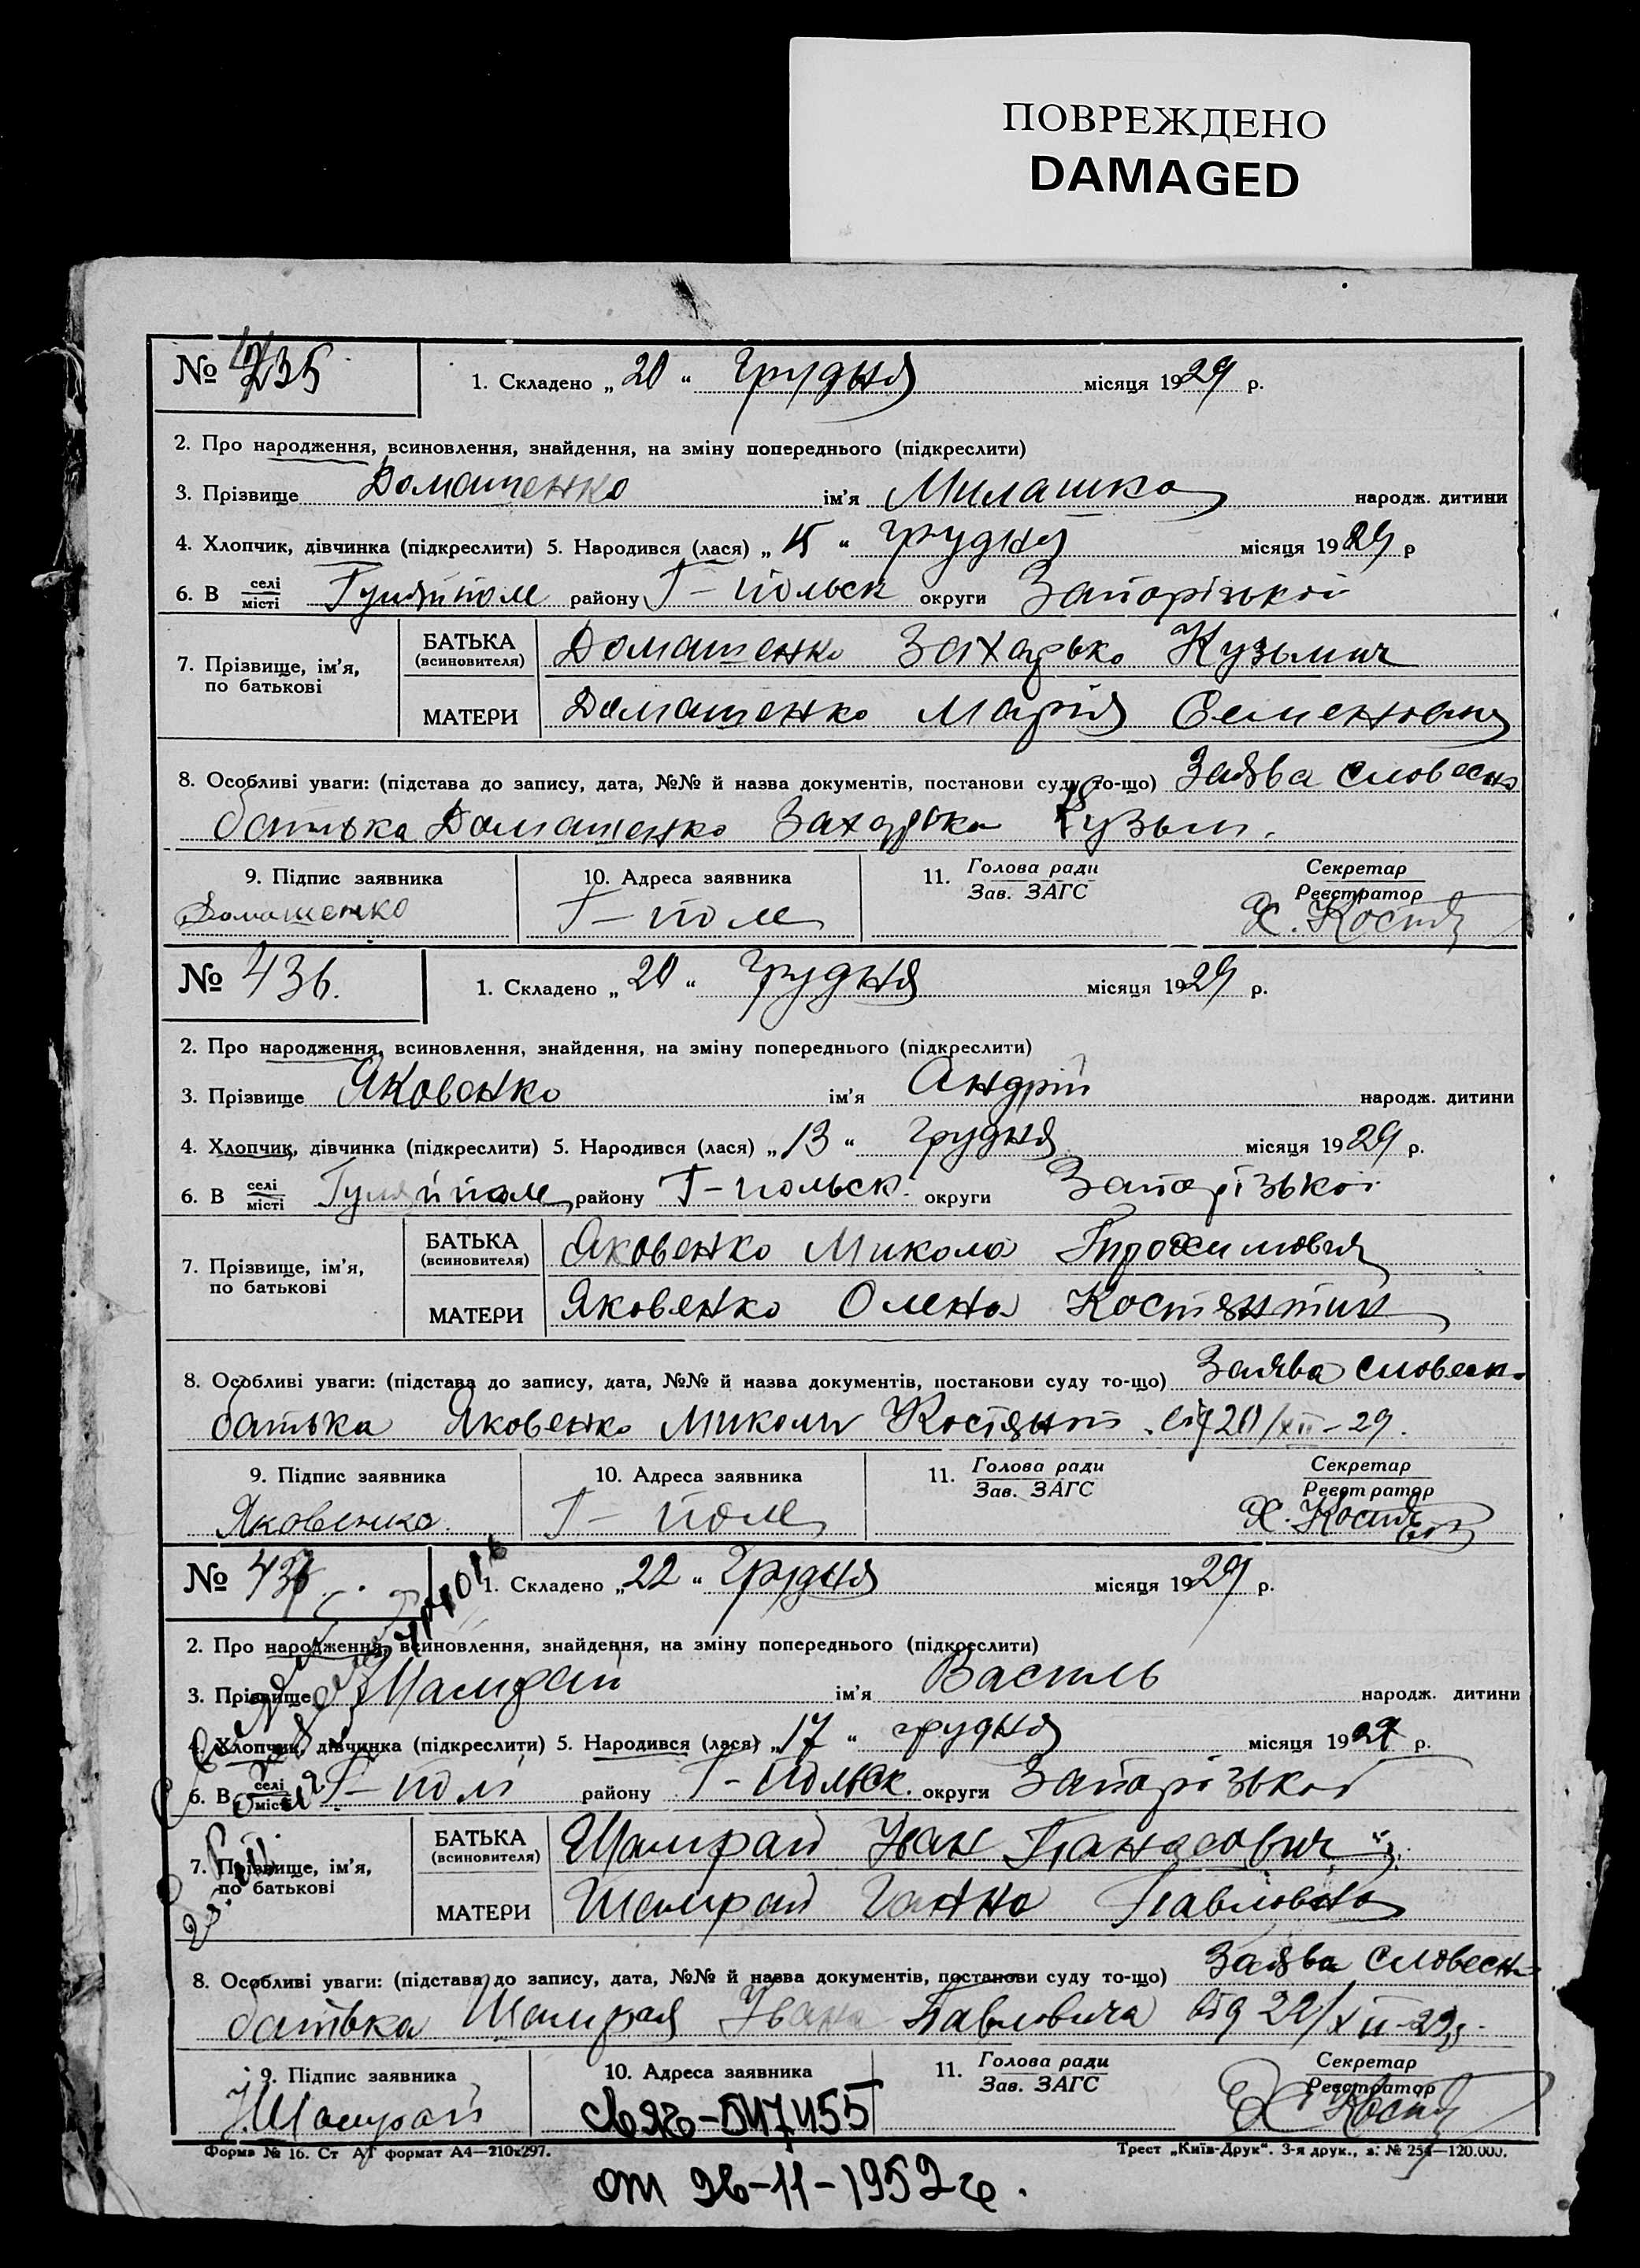 ПОВРЕЖДЕНО
DAMAGED
№ 435
1. Складено „ 20 “ Грудня місяця 1929 р.
2. Про народження, всиновлення, знайдення, на зміну попереднього (підкреслити)
3. Прізвище Домашенко ім'я Милашка народж. дитини
4. Хлопчик, дівчинка (підкреслити) 5. Народився (лася) „ 15 “ грудня місяця 1929 р
6. В селі/місті Гуляйполе району Г-польск округи Запорізької
7. Прізвище, ім'я, по батькові
БАТЬКА (всиновителя) Домашенко Захарько Кузьмич
МАТЕРИ Домашенко Марія Семеновна
8. Особливі уваги: (підстава до запису, дата, №№ й назва документів, постанови суду то-що) Заява словесна
батька Домашенко Захарька Кузьм.
9. Підпис заявника 10. Адреса заявника 11. Голова ради/Зав. ЗАГС Секретар/Реєстратор
Домашенко Г-поле Х. Костя
№ 436.
1. Складено „ 20 “ Грудня місяця 1929 р.
2. Про народження, всиновлення, знайдення, на зміну попереднього (підкреслити)
3. Прізвище Яковенко ім'я Андрій народж. дитини
4. Хлопчик, дівчинка (підкреслити) 5. Народився (лася) „ 13 “ грудня місяця 1929 р.
6. В селі/місті Гуляйполе району Г-польск. округи Запорізької
7. Прізвище, ім'я, по батькові
БАТЬКА (всиновителя) Яковенко Микола Трохимович
МАТЕРИ Яковенко Олена Костянтин
8. Особливі уваги: (підстава до запису, дата, №№ й назва документів, постанови суду то-що) Заява словесн.
батька Яковенко Миколи Костянт. від 20/XII-29.
9. Підпис заявника 10. Адреса заявника 11. Голова ради/Зав. ЗАГС Секретар/Реєстратор
Яковенко. Г-поле Х.
№ 437
1. Складено „ 22 “ Грудня місяця 1929 р.
2. Про народження, всиновлення, знайдення, на зміну попереднього (підкреслити)
3. Прізвище Шамрай ім'я Василь народж. дитини
4. Хлопчик, дівчинка (підкреслити) 5. Народився (лася) „ 17 “ грудня місяця 1929 р.
6. В селі/місті Г-полі району Г-польск. округи Запорізької
7. Прізвище, ім'я, по батькові
БАТЬКА (всиновителя) Шамрай Іван Панасович
МАТЕРИ Шамрай Ганна Павловна
8. Особливі уваги: (підстава до запису, дата, №№ й назва документів, постанови суду то-що) Заява словесн
батька Шамрая Івана Павловича від 22/XII-29.
9. Підпис заявника 10. Адреса заявника 11. Голова ради/Зав. ЗАГС Секретар/Реєстратор
Шамрай 547455
Форма № 16. Ст АТ формат А4—210х297. Трест „Київ-Друк“. 3-я друк., з. № 254—120.000.
от 26-11-1952 г.